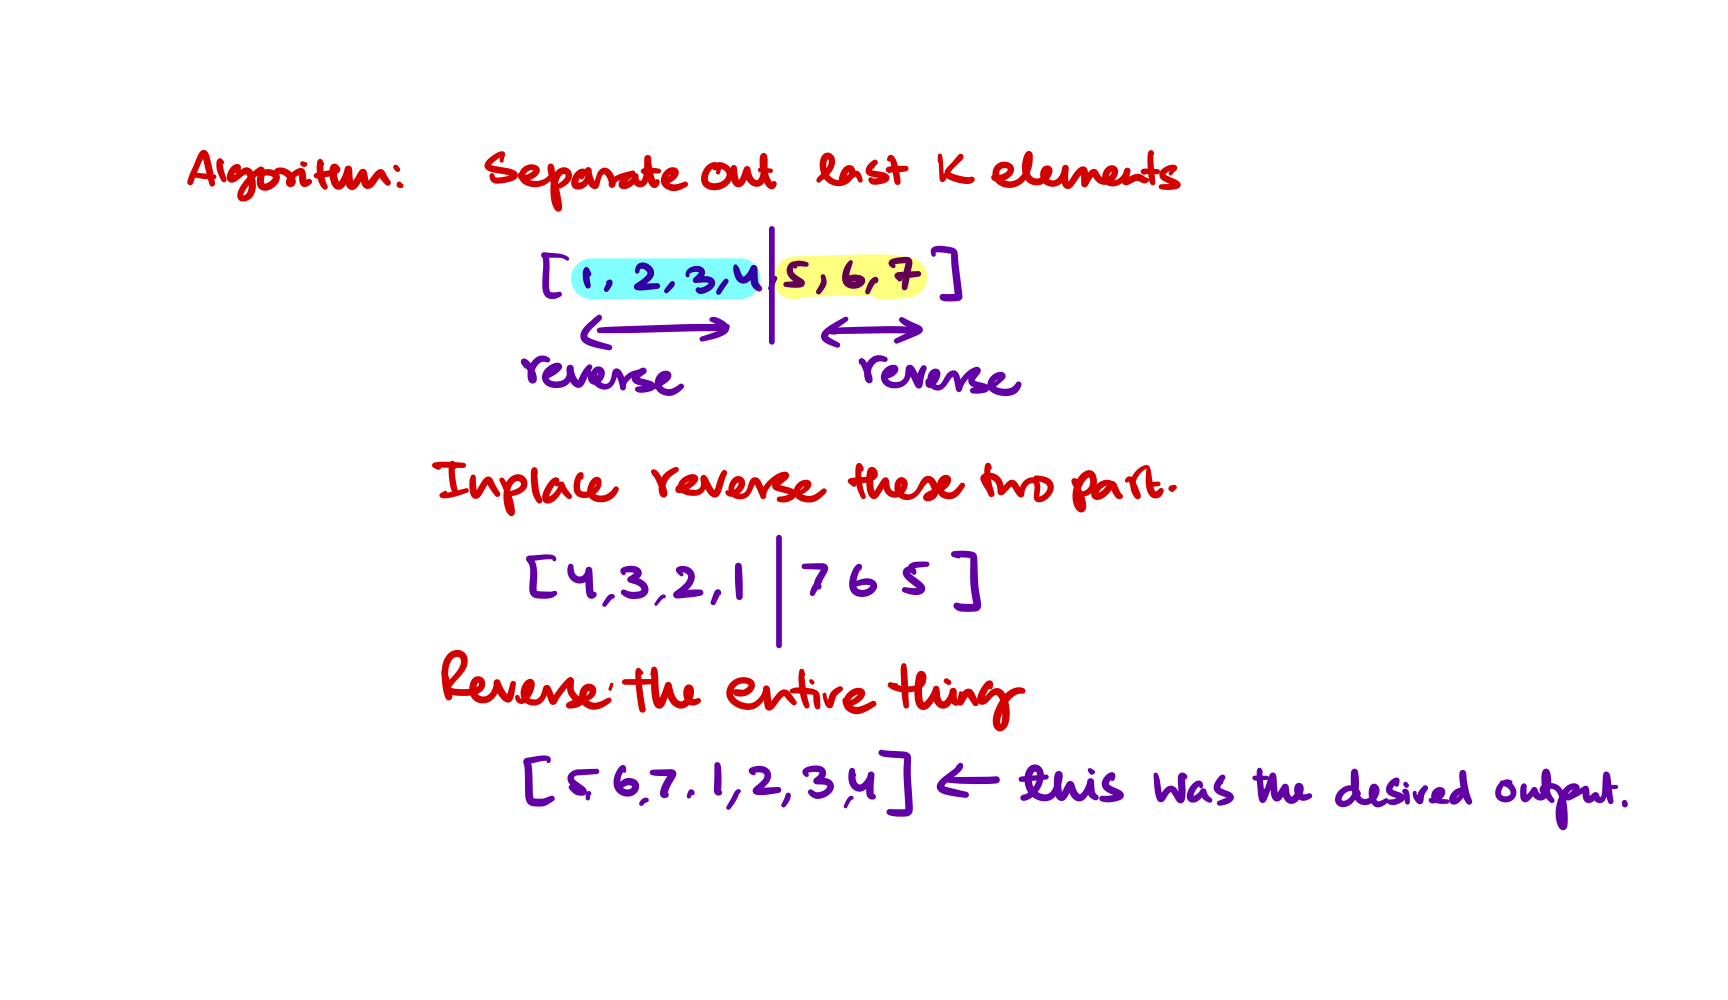 Algoritm: Separate out last K elements
[1, 2, 3, 4, 5, 6, 7]
reverse reverse
Inplace reverse these two part.
[4, 3, 2, 1 | 7 6 5]
Reverse: the entire thing
[5, 6, 7. 1, 2, 3, 4] ← this was the desired output.